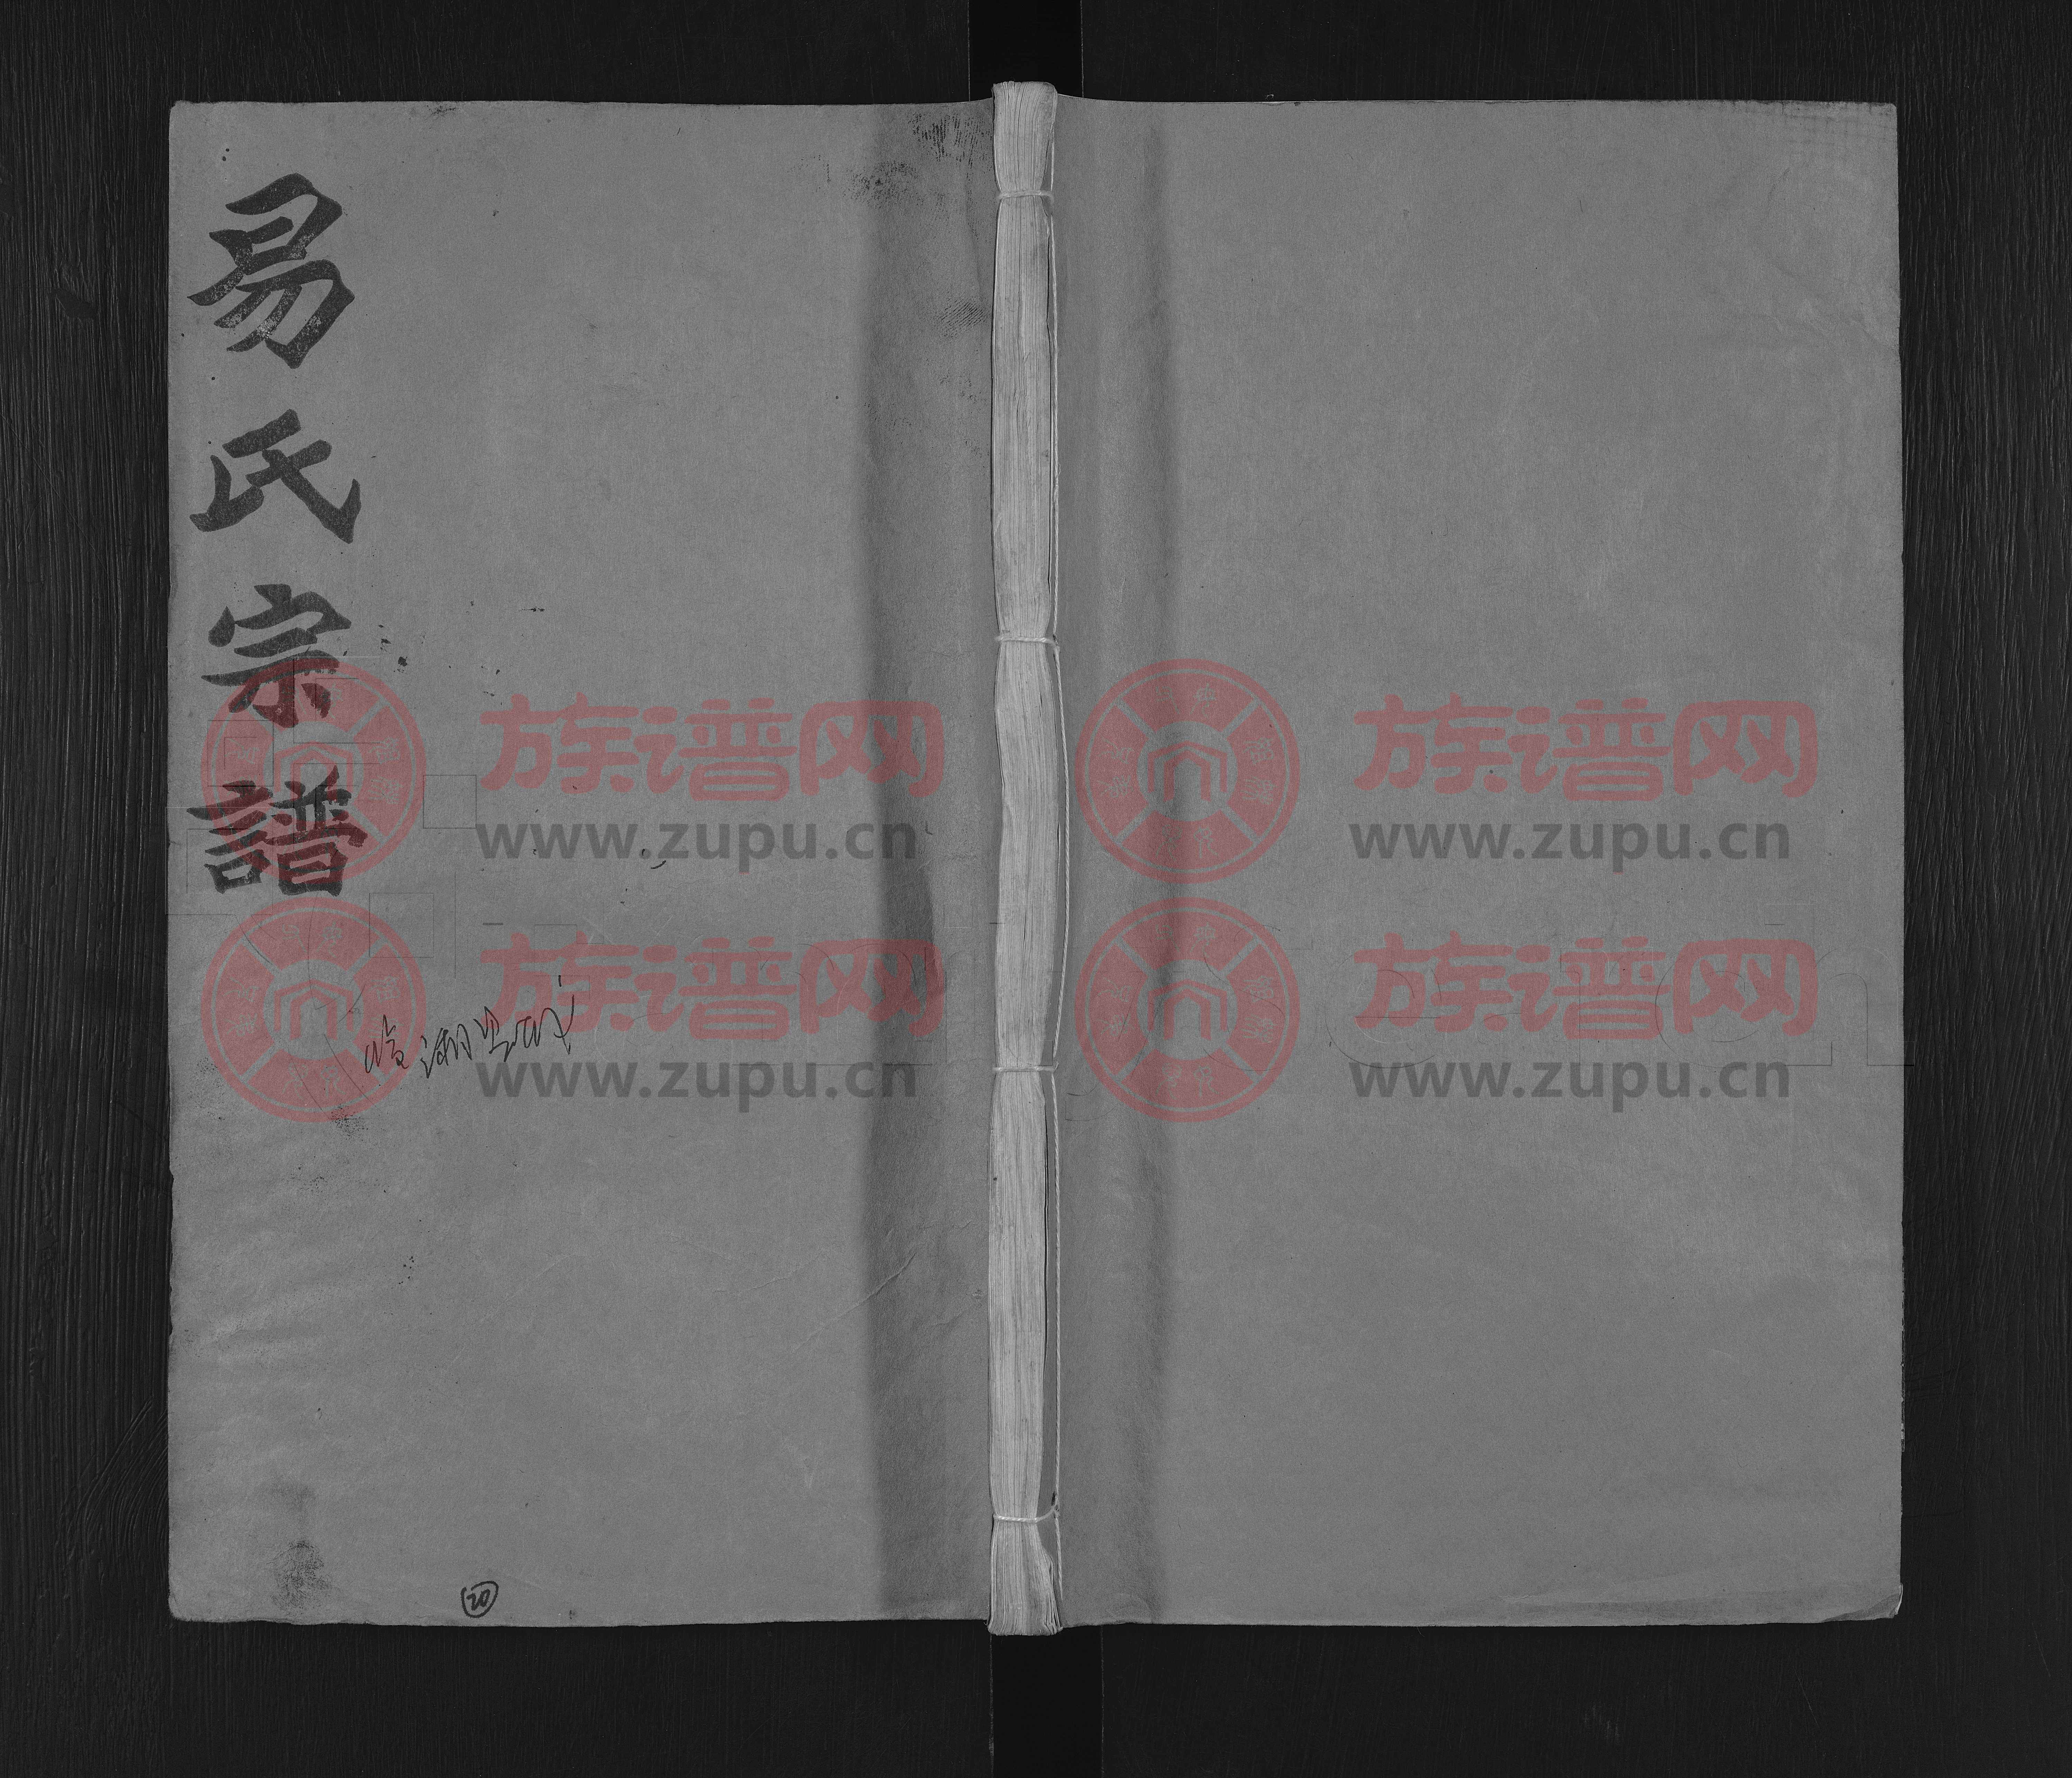 易氏宗譜
族谱网
www.zupu.cn
族谱网
www.zupu.cn
族谱网
www.zupu.cn
族谱网
www.zupu.cn
20